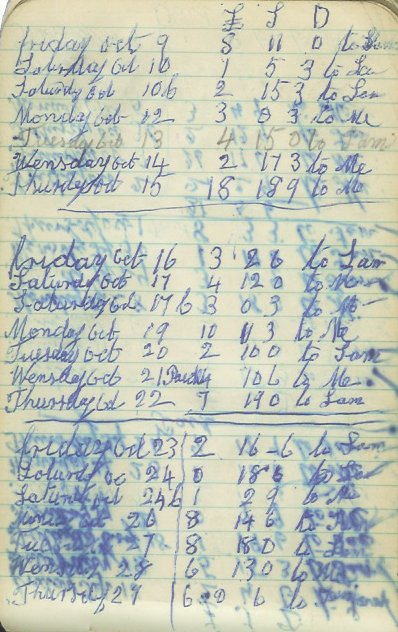 £ S D
Friday Oct 9 8 11 0 to Sam
Saturday Oct 10 1 5 3 to Sam
Saturday Oct 10 6 2 15 3 to Sam
Monday Oct 12 3 9 3 to Me
Tuesday Oct 13 4 15 0 to Sam
Wensday Oct 14 2 17 3 to Me
Thursday Oct 15 18 18 9 to Me
Friday Oct 16 3 2 6 to Sam
Saturday Oct 17 4 12 0 to
Saturday Oct 17 6 3 0 3 to Me
Monday Oct 19 10 11 3 to Me
Tuesday Oct 20 2 10 0 to Sam
Wensday Oct 21 4 10 6 to Me
Thursday Oct 22 7 19 0 to Sam
Friday Oct 23 2 16 - 6 to Sam
Saturday Oct 24 0 18 6 to
Saturday Oct 24 6 1 2 9 to Me
Oct 26 8 14 6 to
27 8 18 0 to Sam
Wensday 28 6 13 0 to Me
Thursday 29 6 0 6 to